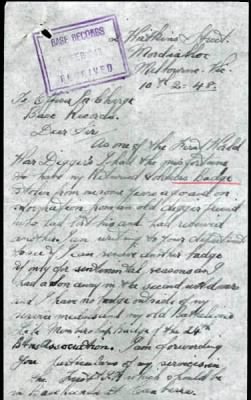 BASE RECORDS
RECEIVED
Watkins Street
Mordialloc
Melbourne. Vic.
10th 2. 48.
To Officer In Charge
Base Records.
Dear Sir,
As one of the First World
War Digger's I had the misfortune
to have my Returned Soldiers Badge
stolen from me some years ago and on
information from an old digger friend
who had lost his and had received
another. I am writing to your department
to see if I can receive another badge
if only for sentimental reasons as I
had a son away in the second world war
and I have no badge outside of my
service medals and my old Battalions
Membership Badge of the
Bn Association. I am forwarding
you particulars of my services in
the First A.I.F. which should be
in